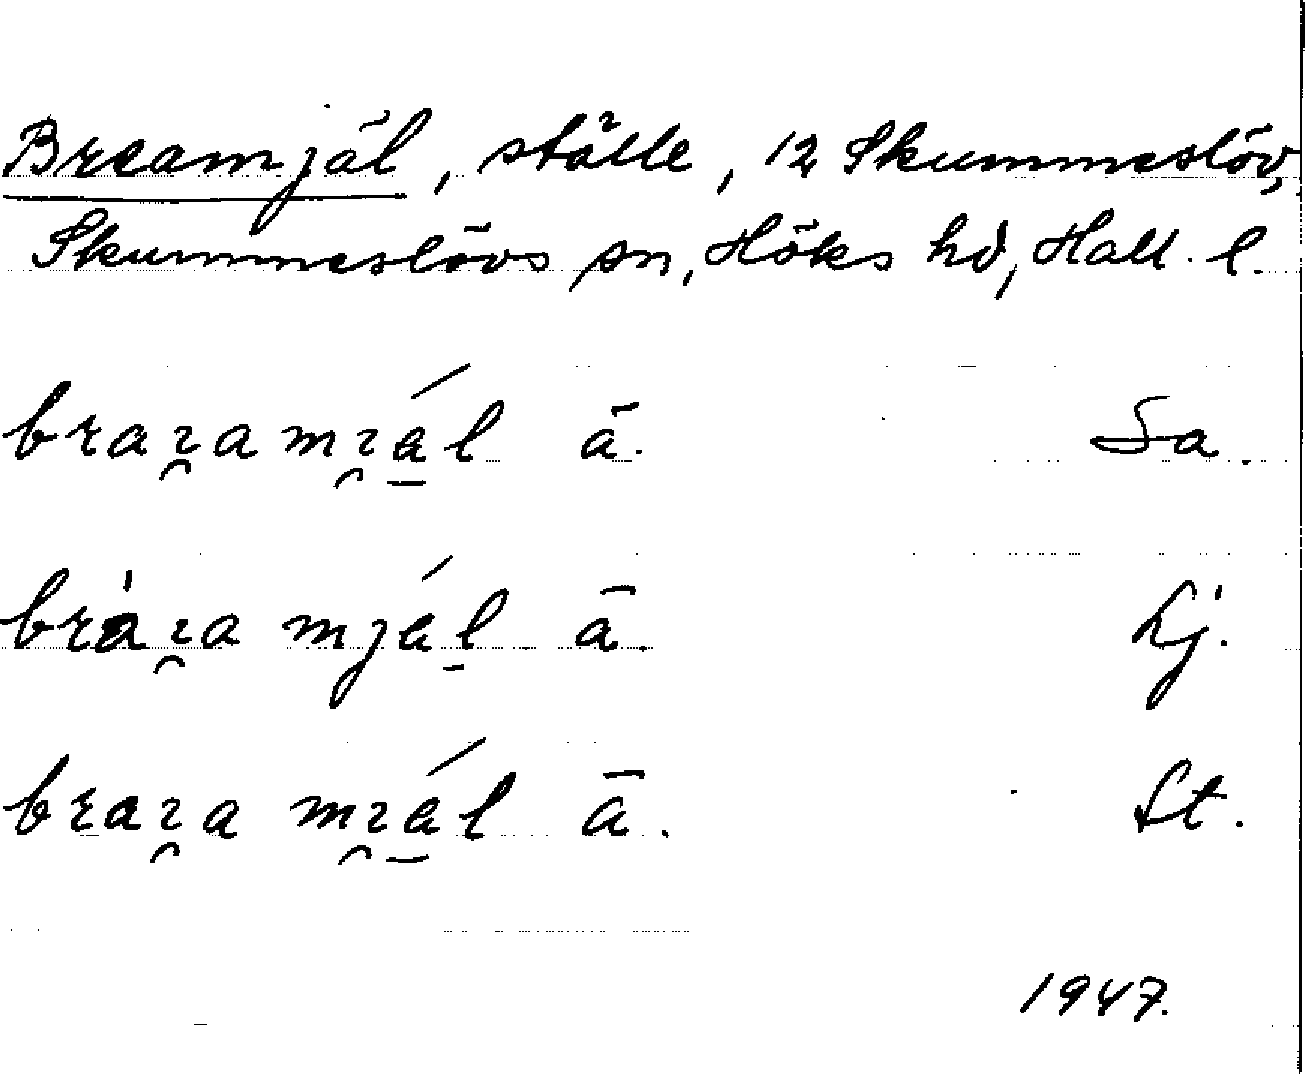 Breamjäl, ställe, 12 Skummeslöv,
Skummeslövs sn, Höks hd, Hall. l.
braɿ̯amɿ̯á̠l ā. Sa.
bràɿ̯a mjál ā. Lj.
braɿ̯a mɿ̯á̠l ā. St.
1947.